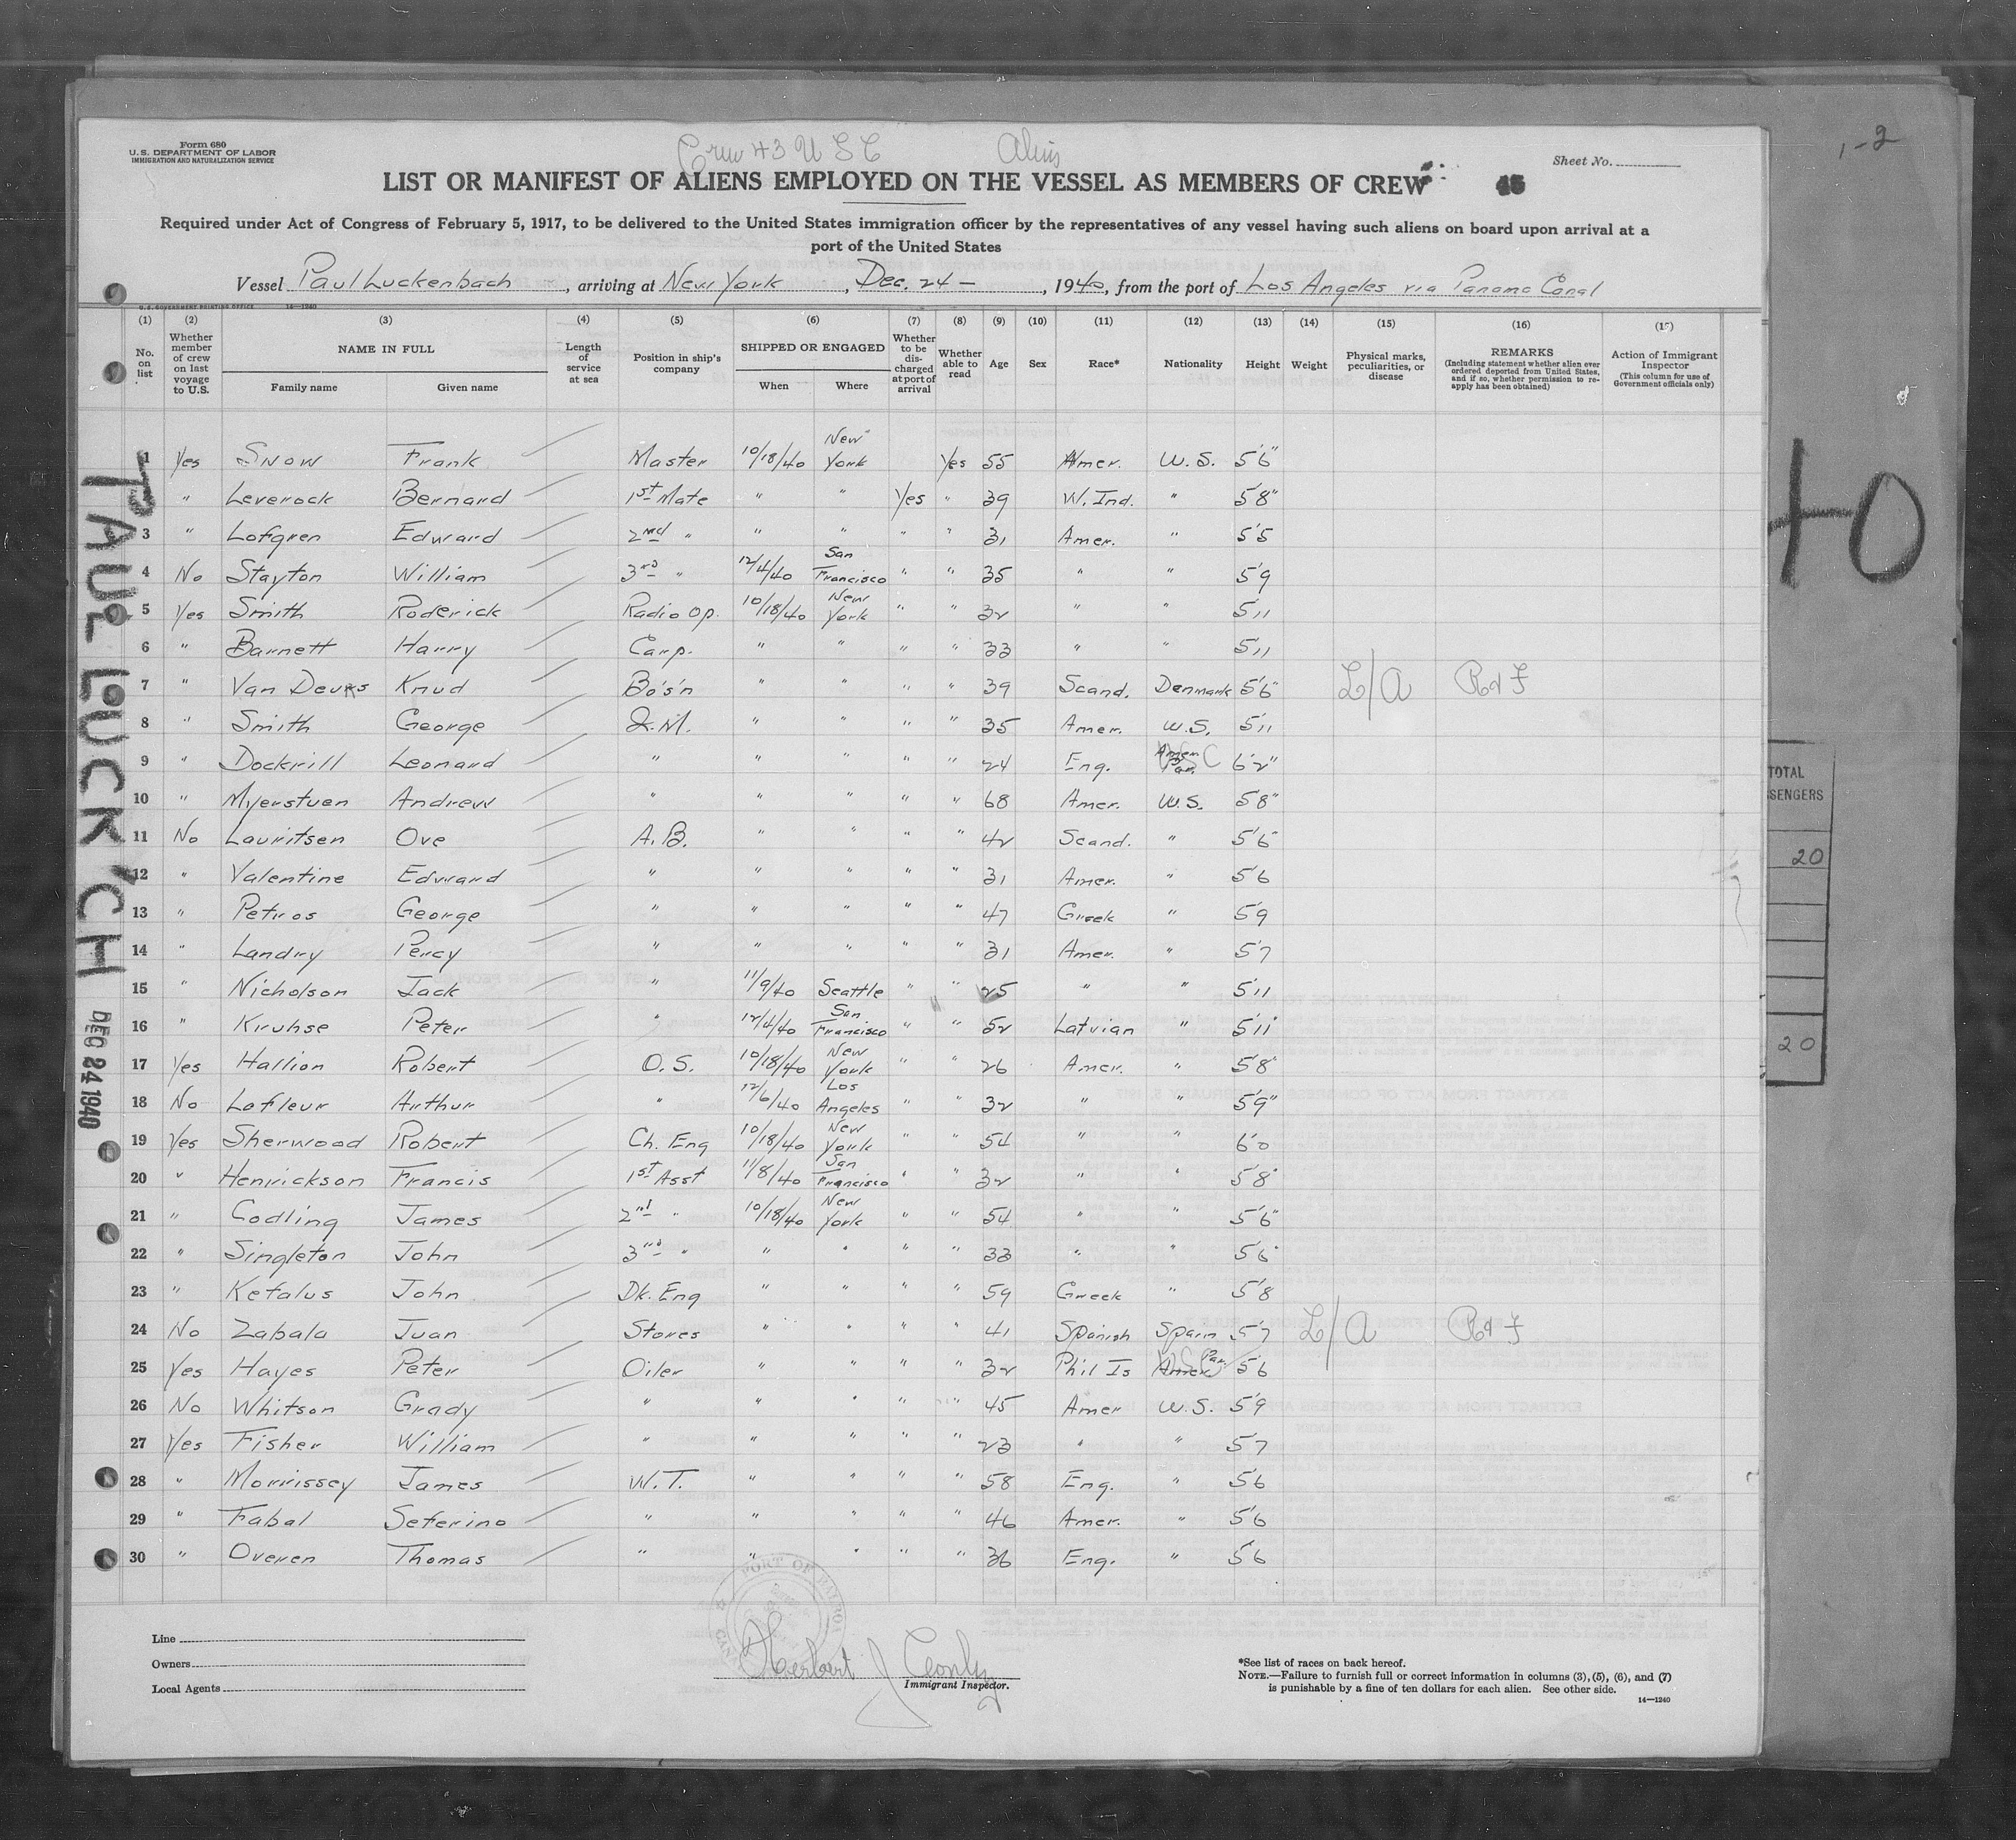 Form 680
U.S. DEPARTMENT OF LABOR
IMMIGRATION AND NATURALIZATION SERVICE
Crew 43 USC
Sheet No.
1-2
LIST OR MANIFEST OF ALIENS EMPLOYED ON THE VESSEL AS MEMBERS OF CREW
45
Required under Act of Congress of February 5, 1917, to be delivered to the United States immigration officer by the representatives of any vessel having such aliens on board upon arrival at a
port of the United States
Vessel Paul Luckenbach, arriving at New York, Dec. 24 —, 1940, from the port of Los Angeles via Panama Canal
U.S. GOVERNMENT PRINTING OFFICE 14—1240
(1) (2) (3) (4) (5) (6) (7) (8) (9) (10) (11) (12) (13) (14) (15) (16) (17)
No. on list
Whether member of crew on last voyage to U.S.
NAME IN FULL
Family name Given name
Length of service at sea
Position in ship's company
SHIPPED OR ENGAGED
When Where
Whether to be discharged at port of arrival
Whether able to read
Age
Sex
Race*
Nationality
Height
Weight
Physical marks, peculiarities, or disease
REMARKS
(Including statement whether alien ever ordered deported from United States, and if so, whether permission to reapply has been obtained)
Action of Immigrant Inspector
(This column for use of Government officials only)
1 Yes Snow Frank Master 10/18/40 New York Yes 55 Amer. U.S. 5'6"
" Leverock Bernard 1st Mate " " Yes " 39 W. Ind. " 5'8"
3 " Lofgren Edward 2nd " " " " " 31 Amer. " 5'5
4 No Stayton William 3rd " 12/4/40 San Francisco " " 35 " " 5'9
5 Yes Smith Roderick Radio Op. 10/18/40 New York " " 32 " " 5'11
6 " Barnett Harry Carp. " " " " 33 " " 5'11
7 " Van Deurs Knud Bo's'n " " " " 39 Scand. Denmark 5'6" L/A R&F
8 " Smith George Q.M. " " " " 35 Amer. U.S. 5'11
9 " Dockrill Leonard " " " " " 24 Eng. USC 6'2"
10 " Myerstuen Andrew " " " " " 68 Amer. U.S. 5'8"
11 No Lauritsen Ove A.B. " " " " 42 Scand. " 5'6
12 " Valentine Edward " " " " " 31 Amer. " 5'6
13 " Petros George " " " " " 47 Greek " 5'9
14 " Landry Percy " " " " " 31 Amer. " 5'7
15 " Nicholson Jack " 11/9/40 Seattle " " 25 " " 5'11
16 " Kruhse Peter " 12/4/40 San Francisco " " 52 Latvian " 5'11
17 Yes Hallion Robert O.S. 10/18/40 New York " " 26 Amer. " 5'8"
18 No Lafleur Arthur " 12/6/40 Los Angeles " " 32 " " 5'9"
19 Yes Sherwood Robert Ch. Eng 10/18/40 New York " " 54 " " 6'0
20 " Henrickson Francis 1st Asst 11/8/40 San Francisco " " 32 " " 5'8"
21 " Codling James 2nd " 10/18/40 New York " " 54 " " 5'6"
22 " Singleton John 3rd " " " " " 33 " " 5'6"
23 " Kefalus John Dk. Eng " " " " 59 Greek " 5'8
24 No Zabala Juan Stores " " " " 41 Spanish Spain 5'7 L/A R&F
25 Yes Hayes Peter Oiler " " " " 32 Phil Is Amer Par. 5'6
26 No Whitson Grady " " " " " 45 Amer U.S. 5'9
27 Yes Fisher William " " " " " 23 " " 5'7
28 " Morrissey James W.T. " " " " 58 Eng. " 5'6
29 " Fabal Seferino " " " " " 46 Amer. " 5'6
30 " Overen Thomas " " " " " 36 Eng. " 5'6
PAUL LUCK'CH
DEC 24 1940
40
TOTAL
20
20
Line
Owners
Local Agents
Herbert J
Immigrant Inspector.
*See list of races on back hereof.
NOTE.—Failure to furnish full or correct information in columns (3), (5), (6), and (7)
is punishable by a fine of ten dollars for each alien. See other side.
14—1240